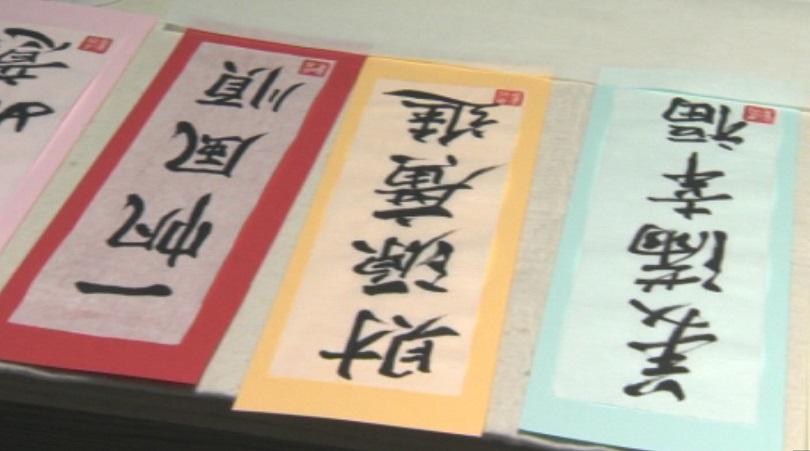 意
一帆風順
財源廣進
美滿幸福